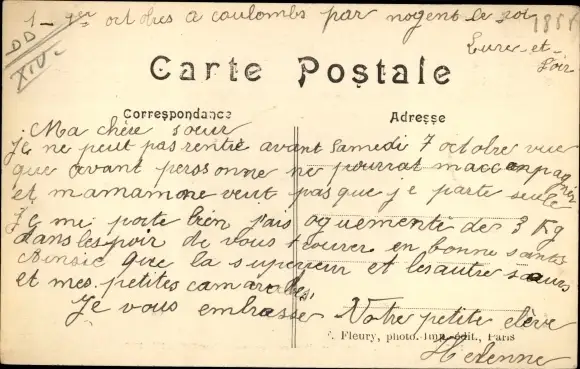 1_ 1er octobres a coulombs par nogent le roi
Eure-et-
Loir
DD
XIV.
Carte Postale
Correspondance
Adresse
Ma chère soeur
Je ne peut pas rentré avant samedi 7 octobre vue
que avant perssonne ne pourrat maccompagner
et mamamone veut pas que je parte seule
Je me porte bien j'ais oguementé de 3 Kg
dans lespoir de vous trouver en bonne santés
Ainsie que la superieur et lesautre sœurs
et mes petites camarades,
Je vous embrasse Votre petite elève
Fleury, photo. Imp. édit., Paris
Helenne